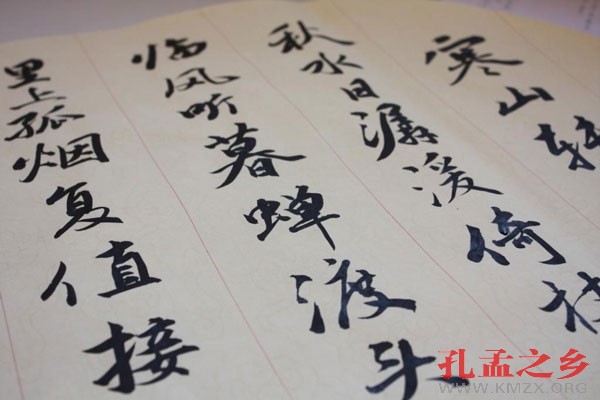 寒山转
秋水日潺湲倚
临风听暮蝉渡头
里上孤烟复值接
孔孟之乡
WWW.KMZX.ORG